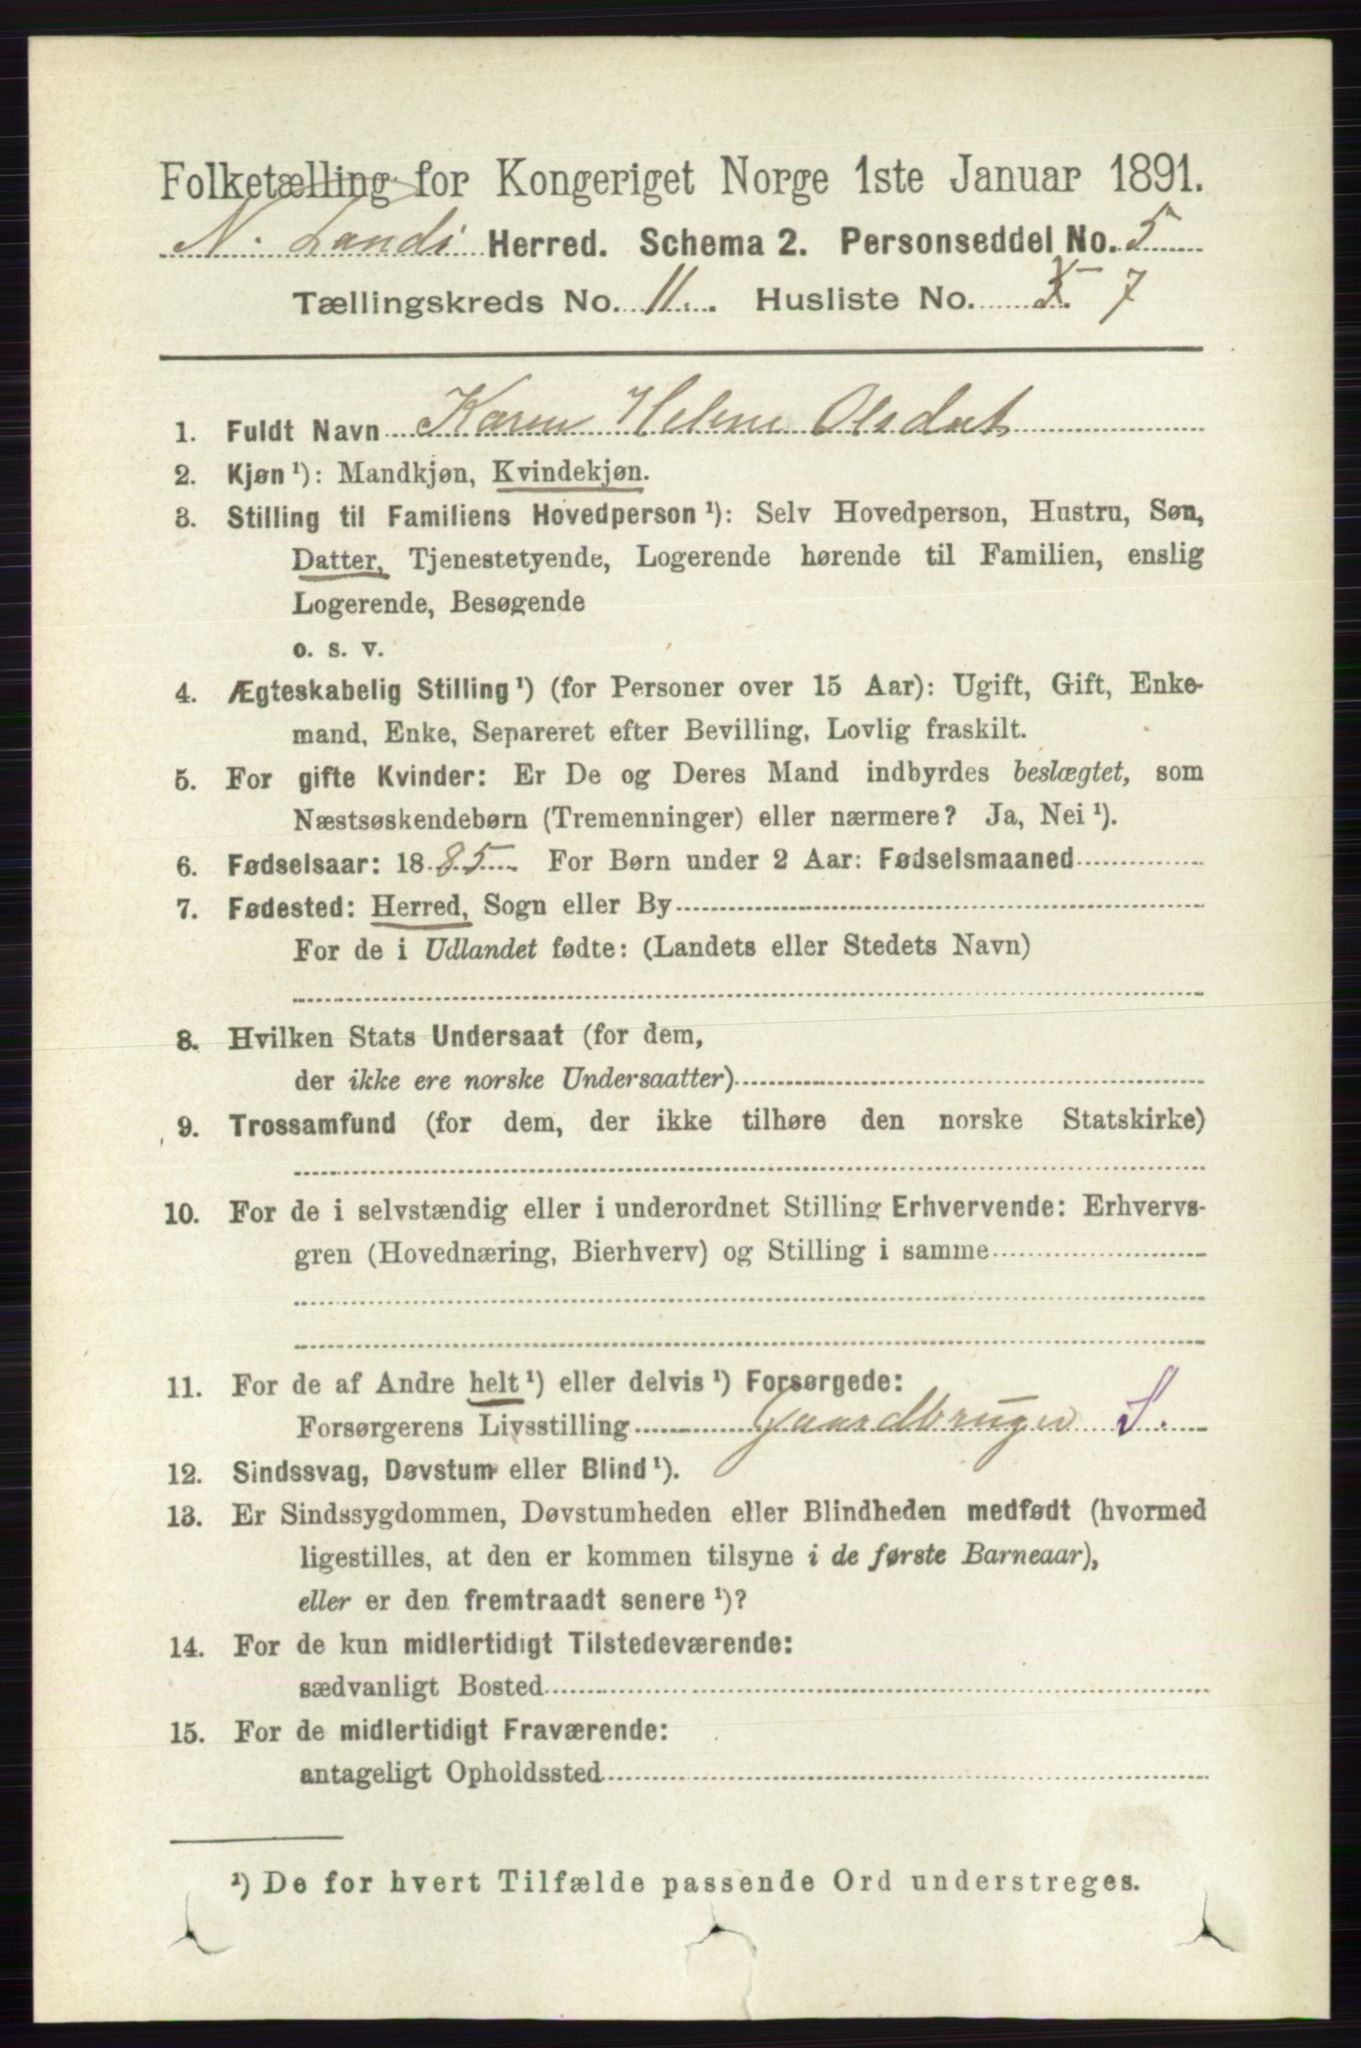 Folketælling for Kongeriget Norge 1ste Januar 1891.
N. Lands Herred. Schema 2. Personseddel No. 5
Tællingskreds No. 11. Husliste No. 5. 7
1. Fuldt Navn Karen Helene Olsdat
2. Kjøn ¹): Mandkjøn, Kvindekjøn.
3. Stilling til Familiens Hovedperson ¹): Selv Hovedperson, Hustru, Søn,
Datter, Tjenestetyende, Logerende hørende til Familien, enslig
Logerende, Besøgende
o. s. v.
4. Ægteskabelig Stilling ¹) (for Personer over 15 Aar): Ugift, Gift, Enke-
mand, Enke, Separeret efter Bevilling, Lovlig fraskilt.
5. For gifte Kvinder: Er De og Deres Mand indbyrdes beslægtet, som
Næstsøskendebørn (Tremenninger) eller nærmere? Ja, Nei ¹).
6. Fødselsaar: 1885. For Børn under 2 Aar: Fødselsmaaned
7. Fødested: Herred, Sogn eller By
For de i Udlandet fødte: (Landets eller Stedets Navn)
8. Hvilken Stats Undersaat (for dem,
der ikke ere norske Undersaatter)
9. Trossamfund (for dem, der ikke tilhøre den norske Statskirke)
10. For de i selvstændig eller i underordnet Stilling Erhvervende: Erhvervs-
gren (Hovednæring, Bierhverv) og Stilling i samme
11. For de af Andre helt ¹) eller delvis ¹) Forsørgede:
Forsørgerens Livsstilling Gaardbruger S.
12. Sindssvag, Døvstum eller Blind ¹).
13. Er Sindssygdommen, Døvstumheden eller Blindheden medfødt (hvormed
ligestilles, at den er kommen tilsyne i de første Barneaar),
eller er den fremtraadt senere ¹)?
14. For de kun midlertidigt Tilstedeværende:
sædvanligt Bosted
15. For de midlertidigt Fraværende:
antageligt Opholdssted
¹) De for hvert Tilfælde passende Ord understreges.